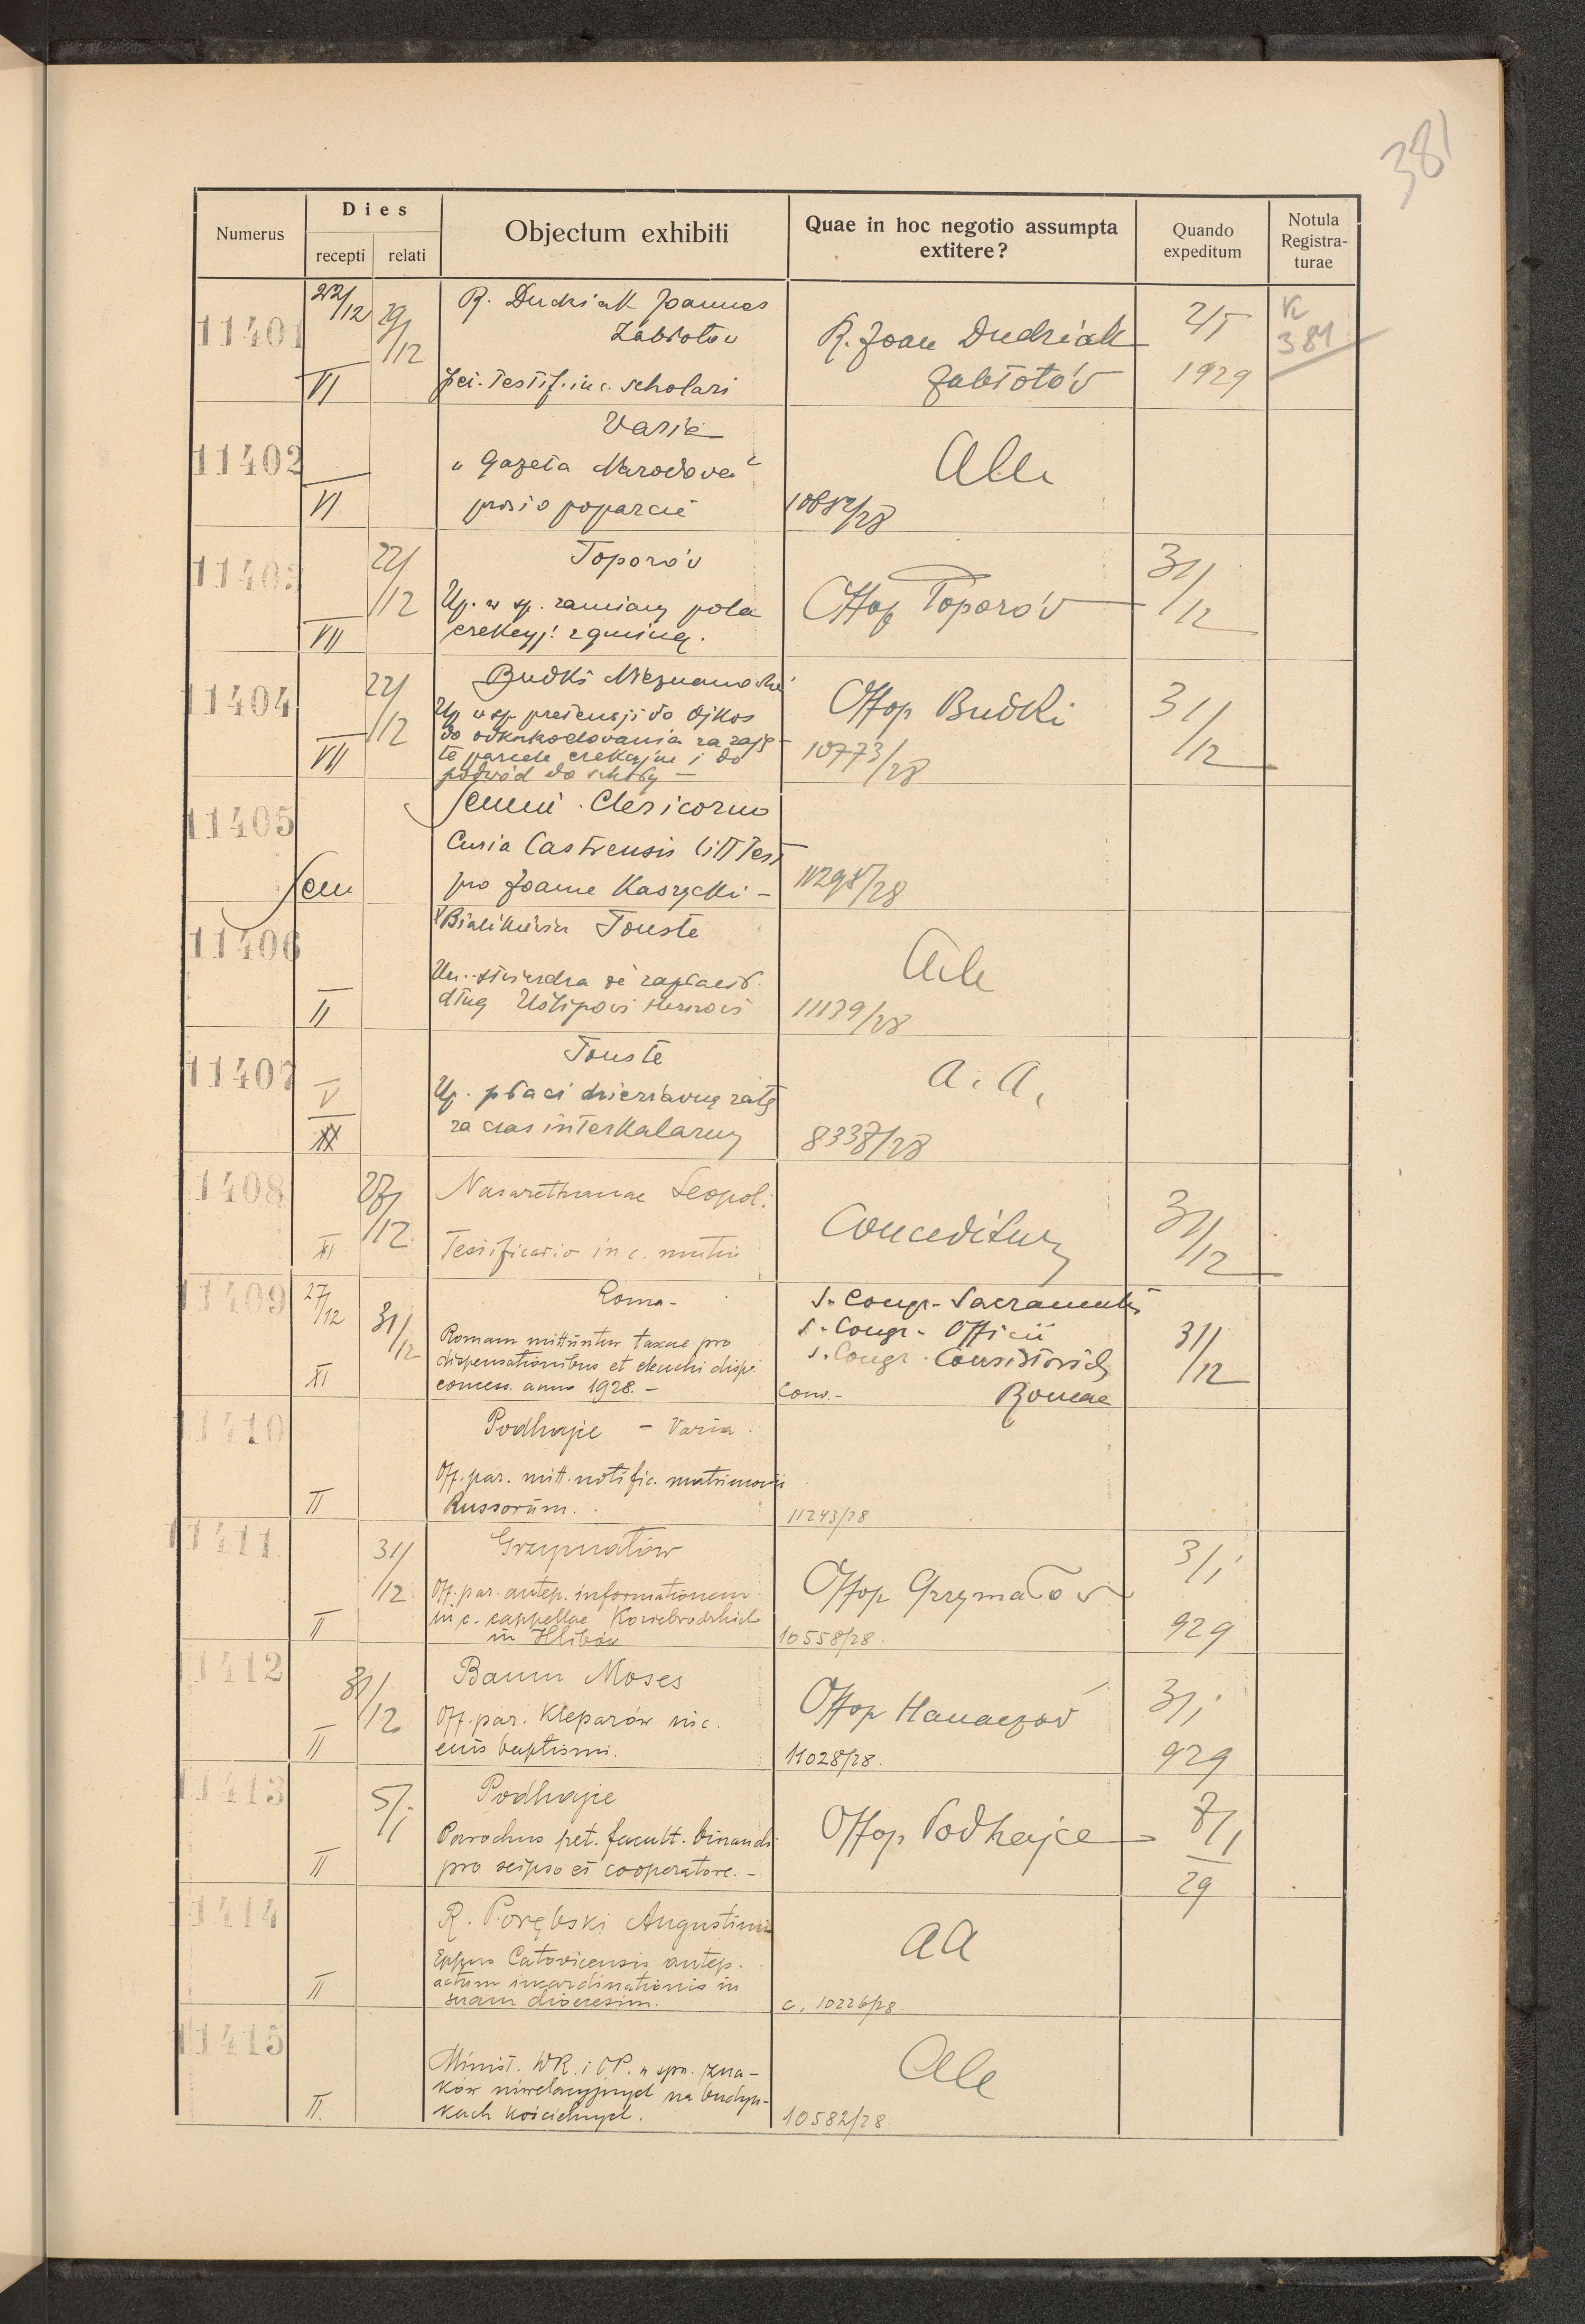 381
Numerus
Dies
recepti
relati
Objectum exhibiti
Quae in hoc negotio assumpta
extitere?
Quando
expeditum
Notula
Registra-
turae
11401
22/12
29/12
VI
R. Dudziak Joannes
Zabłotów
test. in c. scholari
R. Joan Dudziak
Zabłotów
2/I
1929
381
11402
VI
Varia
"Gazeta Narodowa"
prosi o poparcie
Ale
/28
11403
22/12
VII
Toporów
Up. w sp. zamiany pola
erekcyj. z gminą.
Offop Toporów
31/12
11404
22/12
VII
Budki Nieznanowskie
Up. w sp. pretensji do
do odszkodowania za zaję-
te parcele erekcyjne i do
podwód do szkoły -
Offop Budki
10773/28
31/12
11405
Sem
Semin. Clericorum
Curia Castrensis litt test
pro Joanne Kaszycki -
/28
11406
II
Touste
dług
Ale
11139/28
11407
V
XX
Touste
Up. płaci dzierżawną ratę
za czas interkalarny
a. a.
8337/28
11408
27/12
XI
Nazarethanae Leopol.
Testificatio in c.
Conceditur
31/12
11409
27/12
31/12
XI
Roma -
Romam mittuntur taxae pro
dispensationibus et elenchi disp.
concess. anno 1928. -
S. Congr. Sacramentis
S. Congr. Officii
S. Congr. Consistorial
Conv. -
Romae
31/12
11410
II
Podhajce - Varia.
Off. par. mitt. notific. matrimonii
Russorum.
11243/28
11411
31/12
II
Grzymałów
Off. par. antep. informationem
in c. cappellae Koziebrodzkich
in Hlibów
Offop Grzymałów
10558/28.
3/i
929
11412
31/12
II
Baum Moses
Off. par. Kleparów in c.
eius baptismi.
Offop Hanaczów
11028/28.
3/i
929
11413
5/i
II
Podhajce
Parochus pet. facult. binandi
pro seipso et cooperatore. -
Offop. Podhajce
7/1
29
11414
II
R. Porębski Augustinus
Eppus Catovicensis antep.
actum incardinationis in
suam dioecesim.
aa
c. 10226/28.
11415
II.
Minist. WR. i OP. w spr. zna-
ków niwelacyjnych na budyn-
kach kościelnych.
Ale
10582/28.